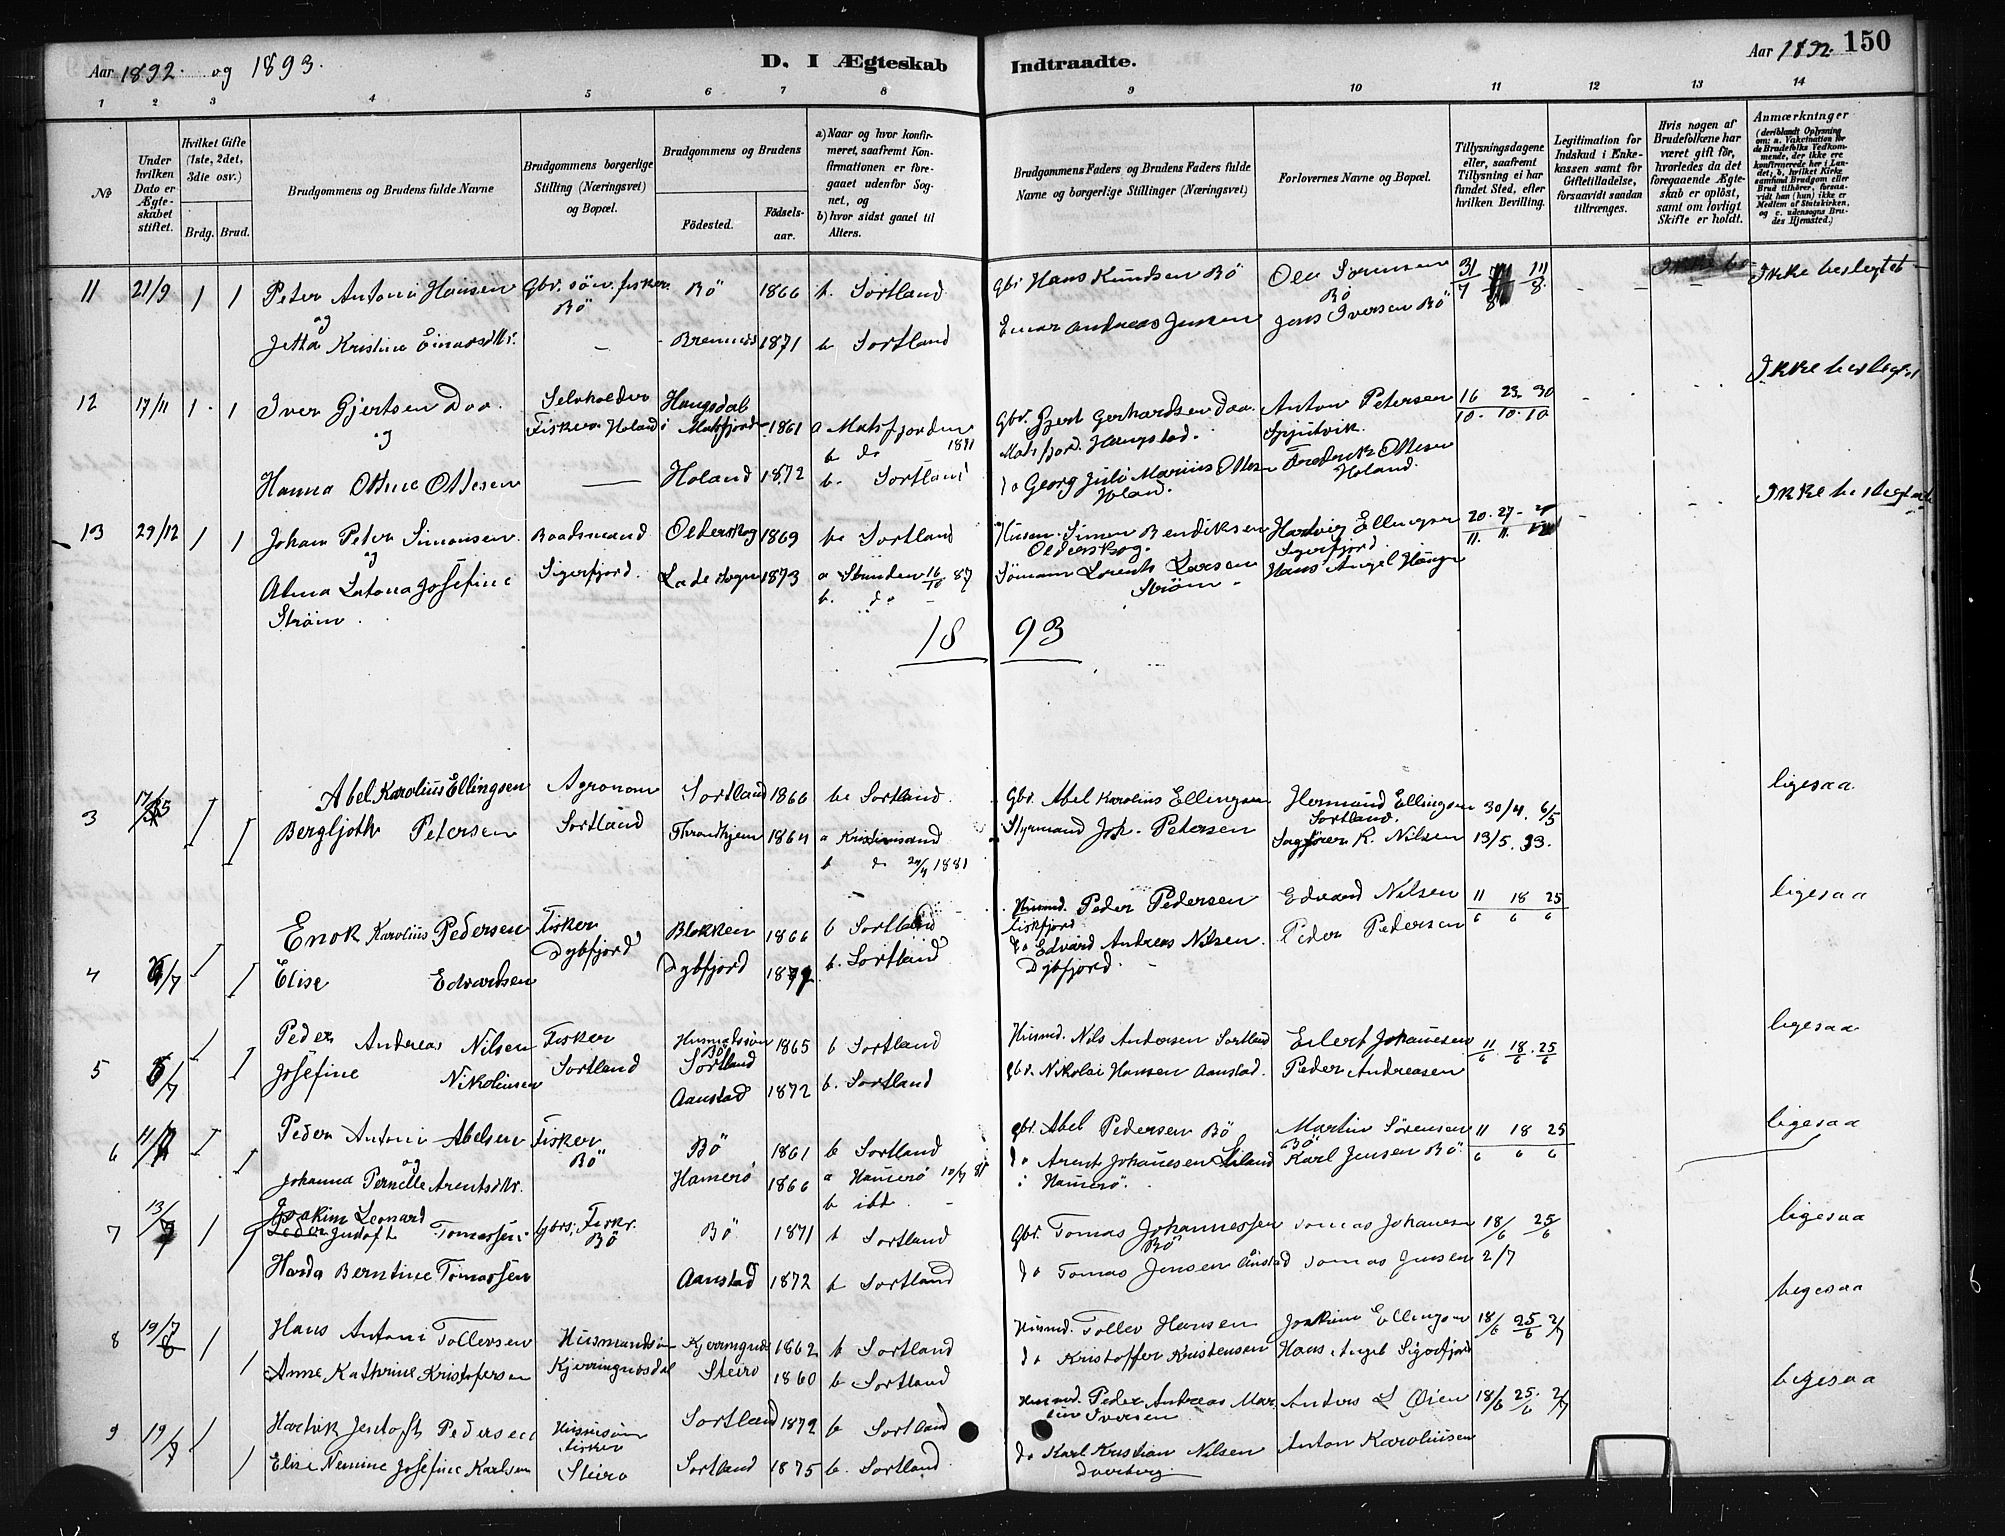 Aar 1892. og 1893.
D. I Ægteskab Indtraadte.
Aar 1892. 150
1 2 3 4 5 6 7 8 9 10 11 12 13 14
No
Under hvilken Dato er Ægteskabet stiftet.
Hvilket Gifte (1ste, 2det, 3die osv.)
Brdg. Brud.
Brudgommens og Brudens fulde Navne
Brudgommens borgerlige Stilling (Næringsvei) og Bopæl.
Brudgommens og Brudens
Fødested. Fødselsaar.
a) Naar og hvor konfirmeret, saafremt Konfirmationen er foregaaet udenfor Sognet, og
b) hvor sidst gaaet til Alters.
Brudgommens Faders og Brudens Faders fulde Navne og borgerlige Stillinger (Næringsvei)
Forlovernes Navne og Bopæl.
Tillysningsdagene eller, saafremt Tillysning ei har fundet Sted, efter hvilken Bevilling.
Legitimation for Indskud i Enkekassen samt for Giftetilladelse, forsaavidt saadan tiltrænges.
Hvis nogen af Brudefolkene har været gift før, hvorledes da det foregaaende Ægteskab er opløst, samt om lovligt Skifte er holdt.
Anmærkninger
(deriblandt Oplysning om: a. Vakcination for de Brudefolks Vedkommende, der ikke ere konfirmerede her i Landet; b. hvilket Kirkesamfund Brudgom eller Brud tilhører, forsaavidt han (hun) ikke er Medlem af Statskirken, og c. udensogns Brudes Hjemsted.)
11 21/9 1 1 Peter Antoni Hansen Gbr. søn. fisker. Bö 1866 b. Sortland Gbr Hans Knudsen Bö Ole Sörensen 31/7 11/8 Ikke beslegtet
og Bö Bö
Jetta Kristine Einarsdtr. — Bremnes 1871 b Sortland Einar Andreas Jensen Jens Iversen Bö
12 17/11 1 1 Iver Gjertsen Daa. Selvholder Haugsdal i Matsfjord 1861 a Matsfjorden 1881 Gbr. Gjert Gerhardsen Daa Anton Petersen 16 23 30 Ikke beslegtet
og Fisker Holand b do Matsfjord. 10. 10. 10
Hanna Otine Ottesen — Holand 1872 b. Sortland do Georg Julö Marius Ottesen Frederik Ottesen
Holand. Holand.
13 29/12 1 1 Johan Peter Simonsen Baadsmand Olderskog 1869 b. Sortland Husm. Simon Bendiksen Hartvig Ellingsen 20. 27 Ikke beslegtet
og Olderskog. Sigerfjord 11. 11.
Alma Latona Josefine Sigerfjord. Lade Sogn 1873 a Strinden 16/10 87 Sömann Lorents Larsen Hans Angel
Ström. b. do Ström
1893
3 17/5 1 1 Abel Karolius Ellingsen Agronom Sortland 1866 b. Sortland. Gbr. Abel Karolius Ellingsen Hermund Ellingsen 30/4. 6/5 ligesaa
Sortland.
Bergljoth Petersen Sortland Throndhjem 1864 a Kristiansund Styrmand Joh. Petersen Sagförer K. Nilsen 13/5. 93.
b do 24/4 1881
4 1 1 Enok Karolius Pedersen Fisker Blokken 1866 b Sortland Husmd. Peder Pedersen Edvard Nilsen 11 18 25 ligesaa
Dybfjord Fiskfjord 6 6 6
Elise Edvardsen Dybfjord b. Sortland do Edvard Andreas Nilsen Peder Pedersen
Dybfjord.
5 1 1 Peder Andreas Nilsen Fisker Husmdsøn Sortland 1865 b Sortland Husmd. Nils Andersen Sortland Eilert Johansen 11/6. 18/6. 25/6 ligesaa
Josefine Nikolinsen Sortland Aanstad 1872 b. Sortland gbr. Nikolai Hansen Aanstad. Peder Andreasen
6 1 1 Peder Antoni Abelsen Fisker Bö 1861 b Sortland gbr. Abel Pedersen Bö Martin Sörensen 11 18 25 ligesaa
og Bö Bö 6 6 6
Johanna Pernelle Arentsdtr. Hamerö 1866 a Hamerö do Arent Johansen Karl Jensen Bö
b ibd. i Hamerö.
7 13/7 1 1 Joakim Leonard Tomassen gbrs. Fiskr. Bö 1871 b Sortland Gbr. Tomas Johannessen Bö Tomas Johansen 18/6 25/6 ligesaa
Bö
Berntine Tomassen Aanstad 1872 b Sortland do Tomas Jensen Ånstad Tomas Jensen 2/7
8 1 1 Hans Antoni Tollersen Husmandsøn 1862 b Sortland Husmd. Toller Hansen Joakim Ellingsen 18/6 25/6 2/7 ligesaa
Anne Kathrine Kristofersen Kjerringnesdal Steiro 1860 b Sortland do Kristoffer Kristensen Hans Angel Sigerfjord
9 19/7 1 1 Hartvik Jentoft Pedersen Husmsøn Sortland 1872 b Sortland Husmd. Peder Andreas Martin Iversen Anders L Öien 18/6 25/6 2/7 ligesaa
fisker
Elise Nemine Josefine Karlsen Steiro Sortland 1875 b. Sortland do Karl Kristian Nilsen Anton Karoliusen
Dverberg